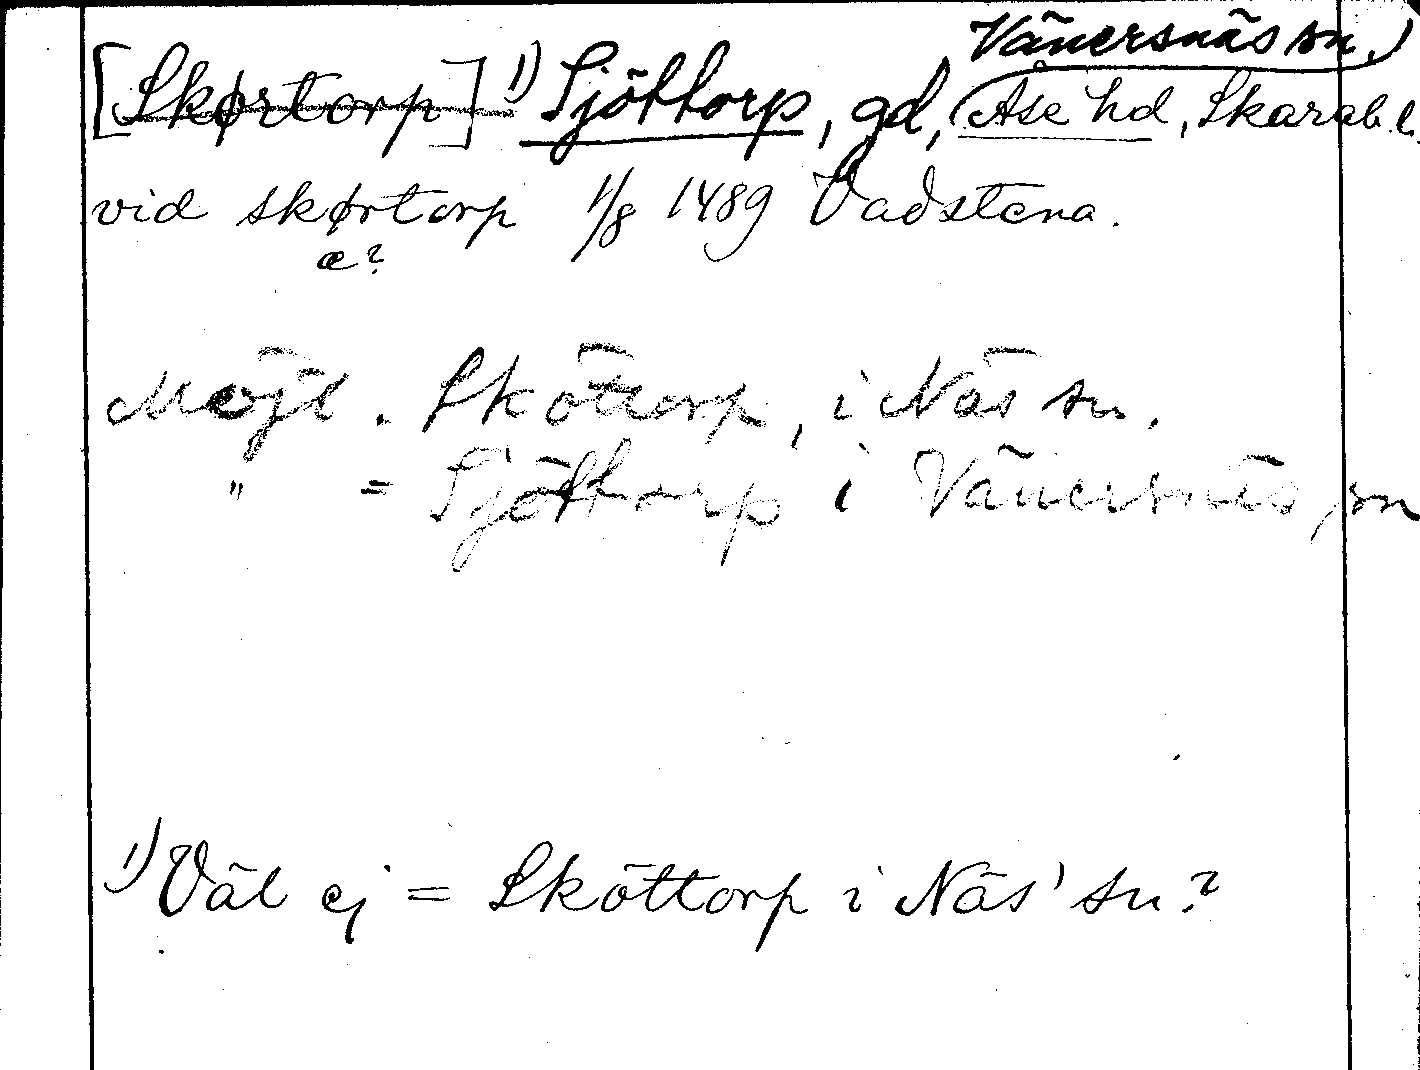 Vänersnäs sn.)
[Skørtorp] 1) Sjöttorp, gd, (Åse hd, Skarab. l.
vid skørtorp 1/8 1489 Vadstena.
æ?
Möjl. Sköttorp, i Näs sn.
" = Sjöttorp i Vänersnäs sn
1) Väl ej = Sköttorp i Näs' sn?